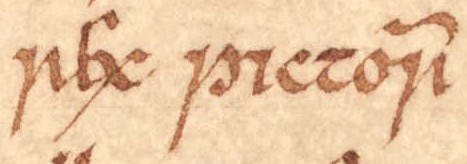 rex pictor̄